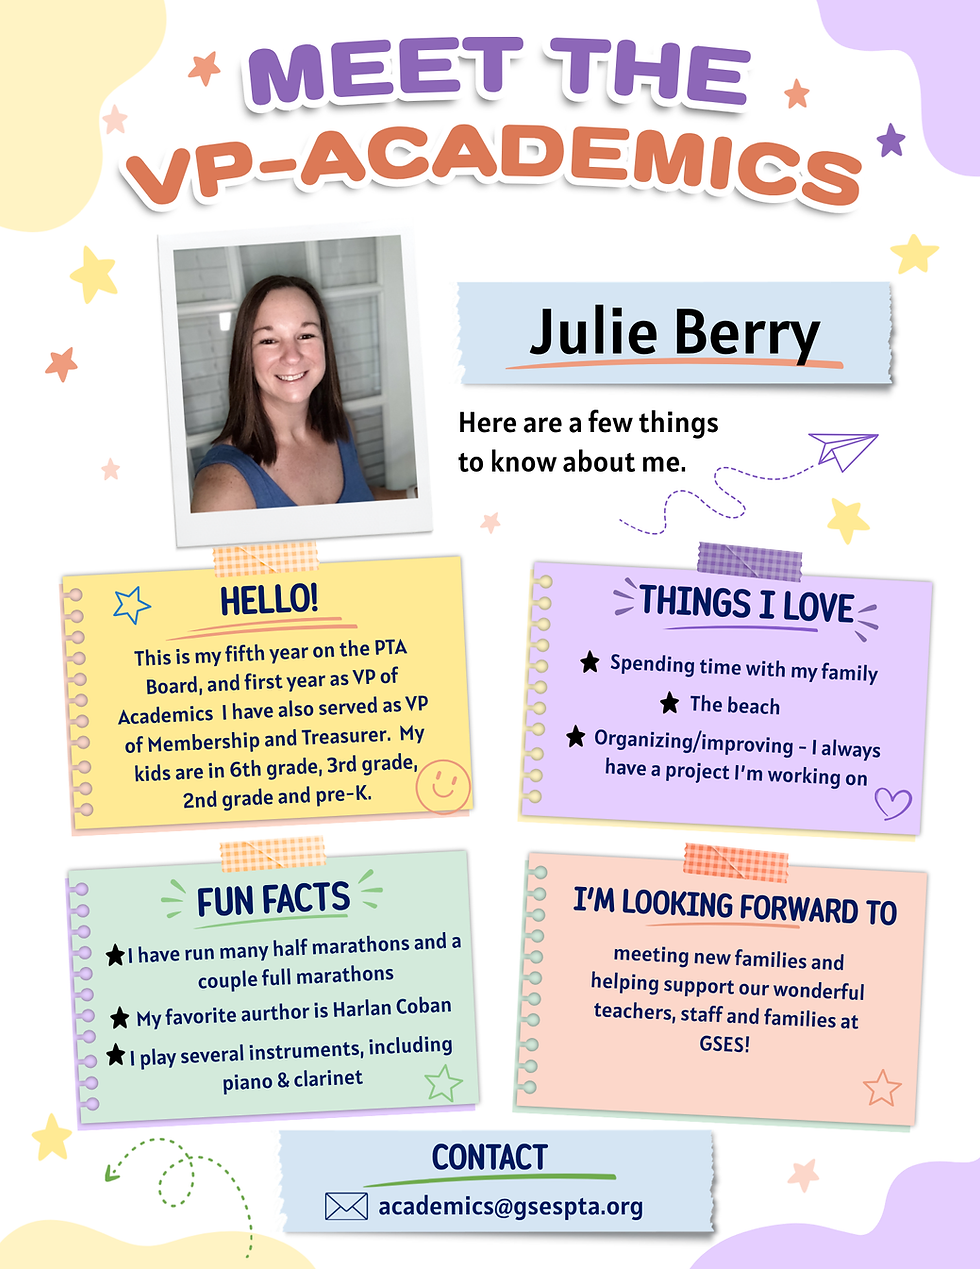 MEET THE
VP-ACADEMICS
Julie Berry
Here are a few things
to know about me.
HELLO!
This is my fifth year on the PTA
Board, and first year as VP of
Academics I have also served as VP
of Membership and Treasurer. My
kids are in 6th grade, 3rd grade,
2nd grade and pre-K.
THINGS I LOVE
Spending time with my family
The beach
Organizing/improving - I always
have a project I'm working on
FUN FACTS
I have run many half marathons and a
couple full marathons
My favorite aurthor is Harlan Coban
I play several instruments, including
piano & clarinet
I'M LOOKING FORWARD TO
meeting new families and
helping support our wonderful
teachers, staff and families at
GSES!
CONTACT
academics@gsespta.org